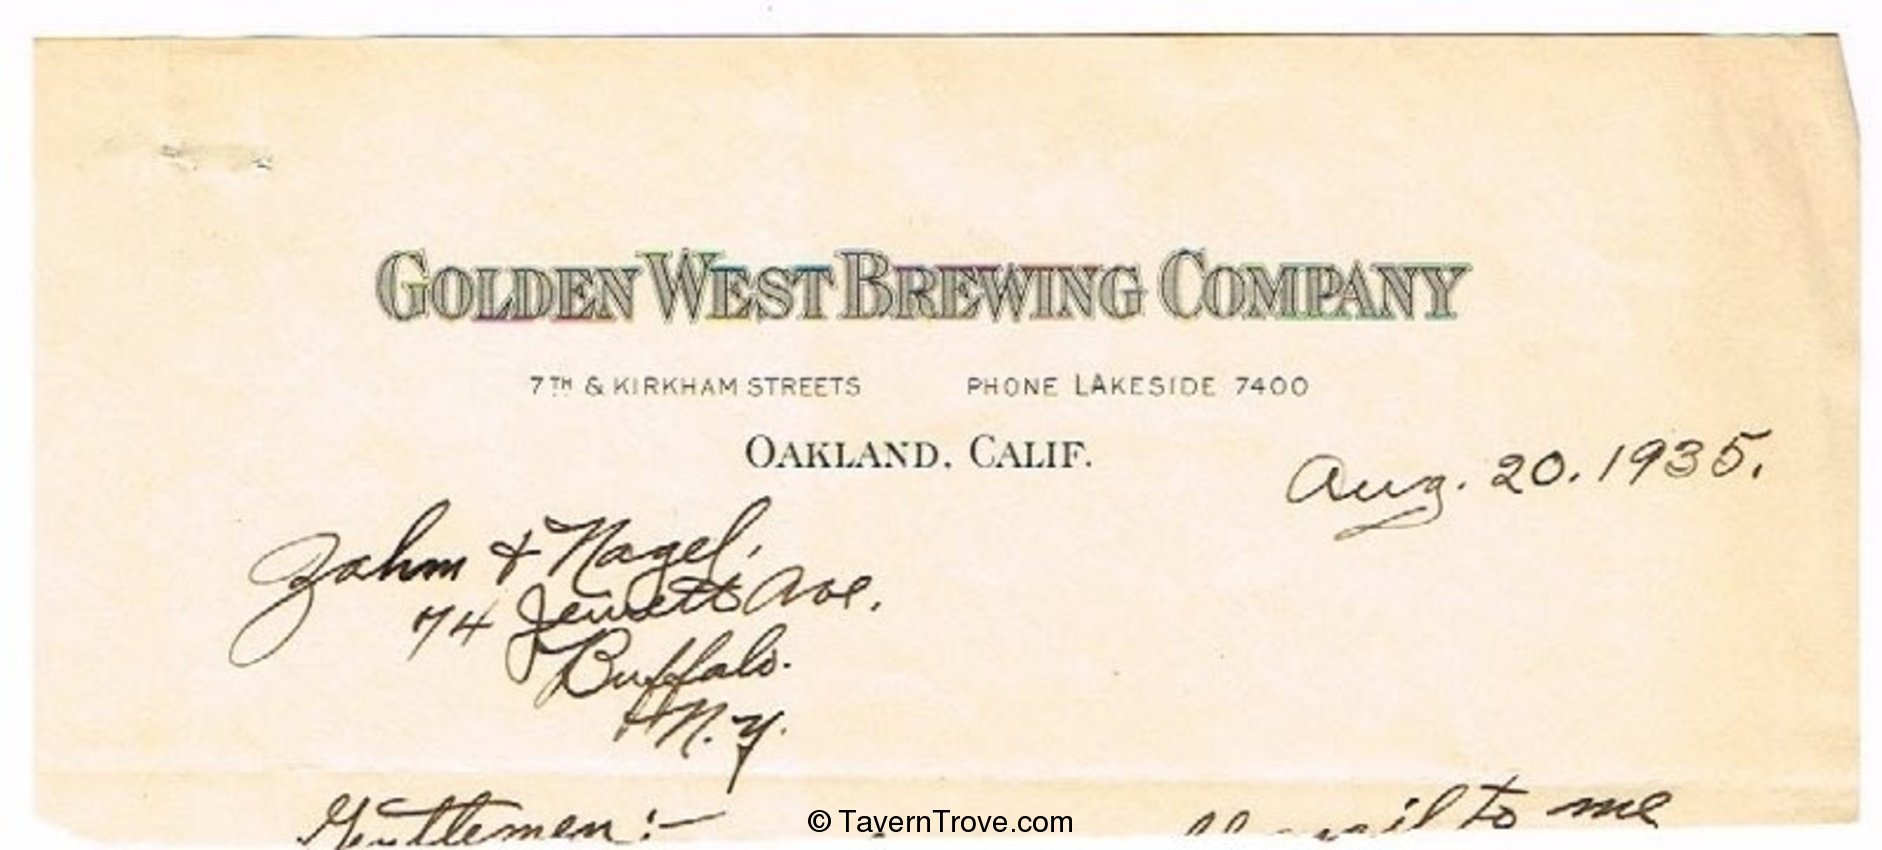 GOLDEN WEST BREWING COMPANY
7TH & KIRKHAM STREETS PHONE LAKESIDE 7400
OAKLAND, CALIF.
Aug. 20. 1935.
Zahm & Nagel,
74 Jewett Ave.
Buffalo.
N.Y.
Gentlemen:- mail to me
© TavernTrove.com